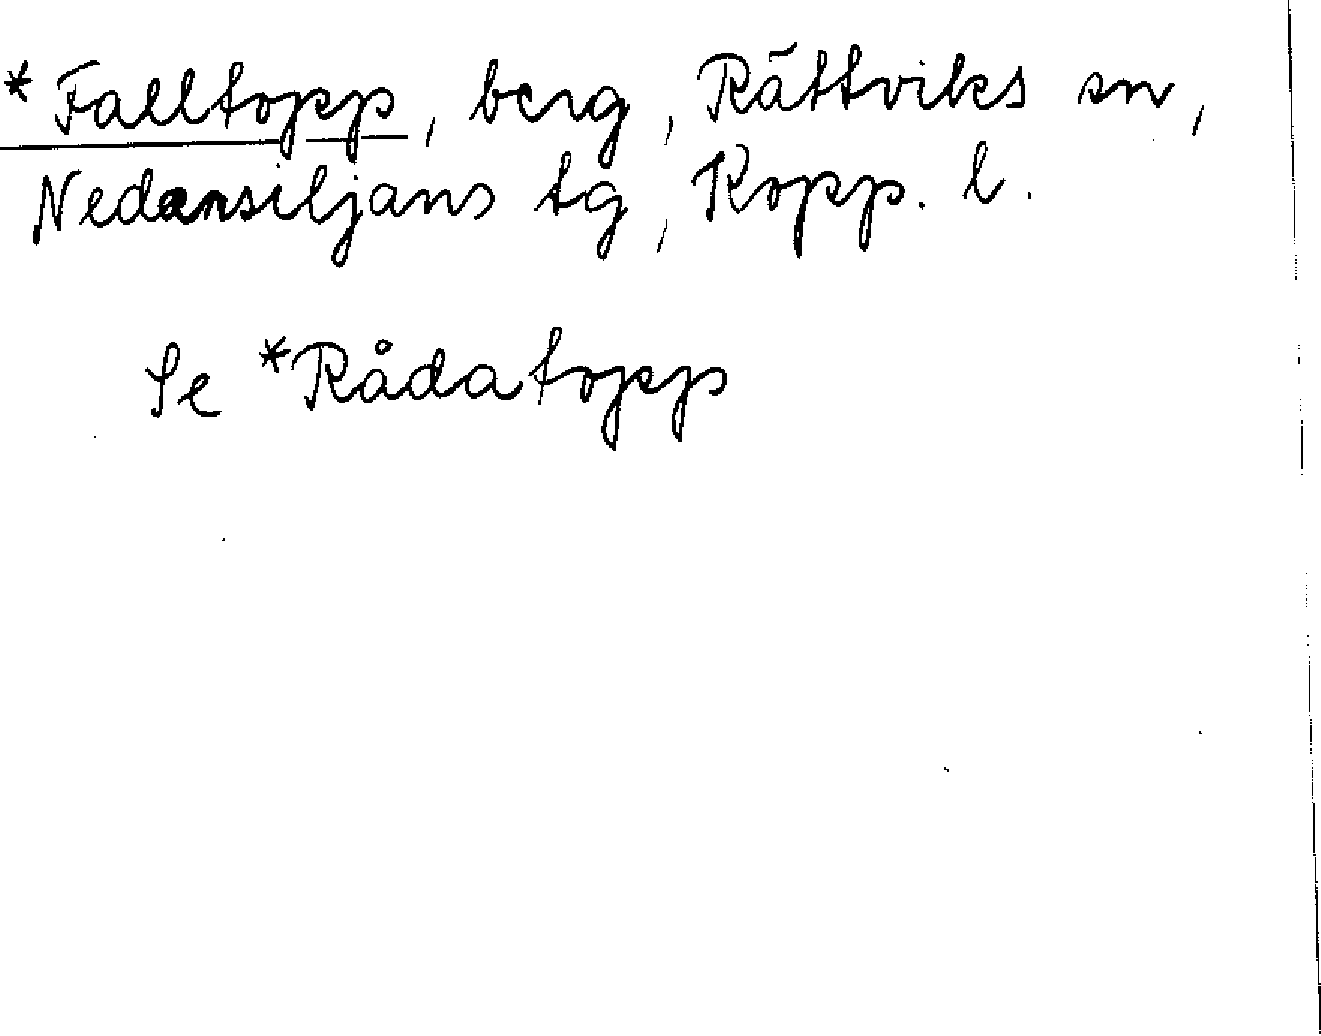 *Falltopp, berg, Rättviks sn,
Nedansiljans tg, Kopp. l.
Se *Rådatopp